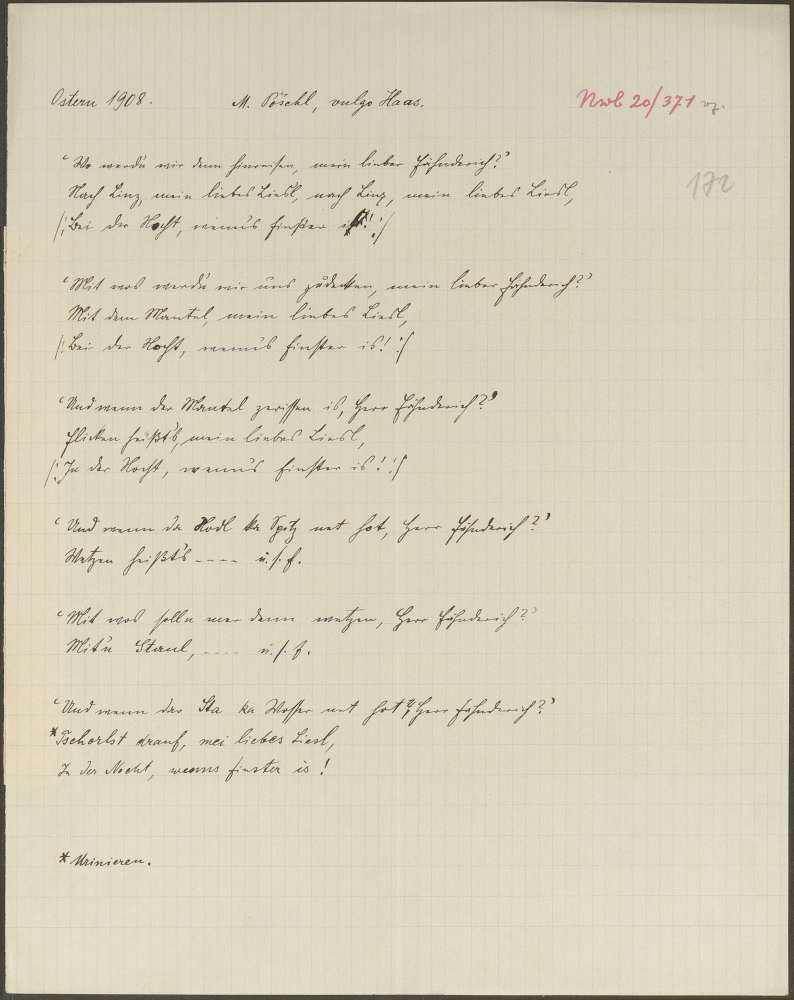 Ostern 1908. M. Pöschl, vulgo Haas. Nwb 20/371
172
"Wo werdn wir denn hinreisen, mein lieber Fähnderich?"
Nach Linz, mein liebes Liesl, nach Linz, mein liebes Liesl,
/: Bei der Nocht, wenn's finster is! :/
"Mit wos werdn wir uns zudecken, mein lieber Fähnderich?"
Mit dem Mantel, mein liebes Liesl,
/: Bei der Nocht, wenn's finster is! :/
"Und wenn der Mantel zerissen is, Herr Fähnderich?"
Flicken heißt's, mein liebes Liesl,
/: In der Nocht, wenn's finster is! :/
"Und wenn da Nodl ka Spitz net hot, Herr Fähnderich?"
Wetzen heißt's ---- u.s.f.
"Mit wos solln mer denn wetzen, Herr Fähnderich?"
Mit'n Stanl, ---- u.s.f.
"Und wenn der Sta ka Wosser net hot, Herr Fähnderich?"
* Tscherlst drauf, mei liebes Liesl,
In der Nocht, wenns finster is!
* Urinieren.